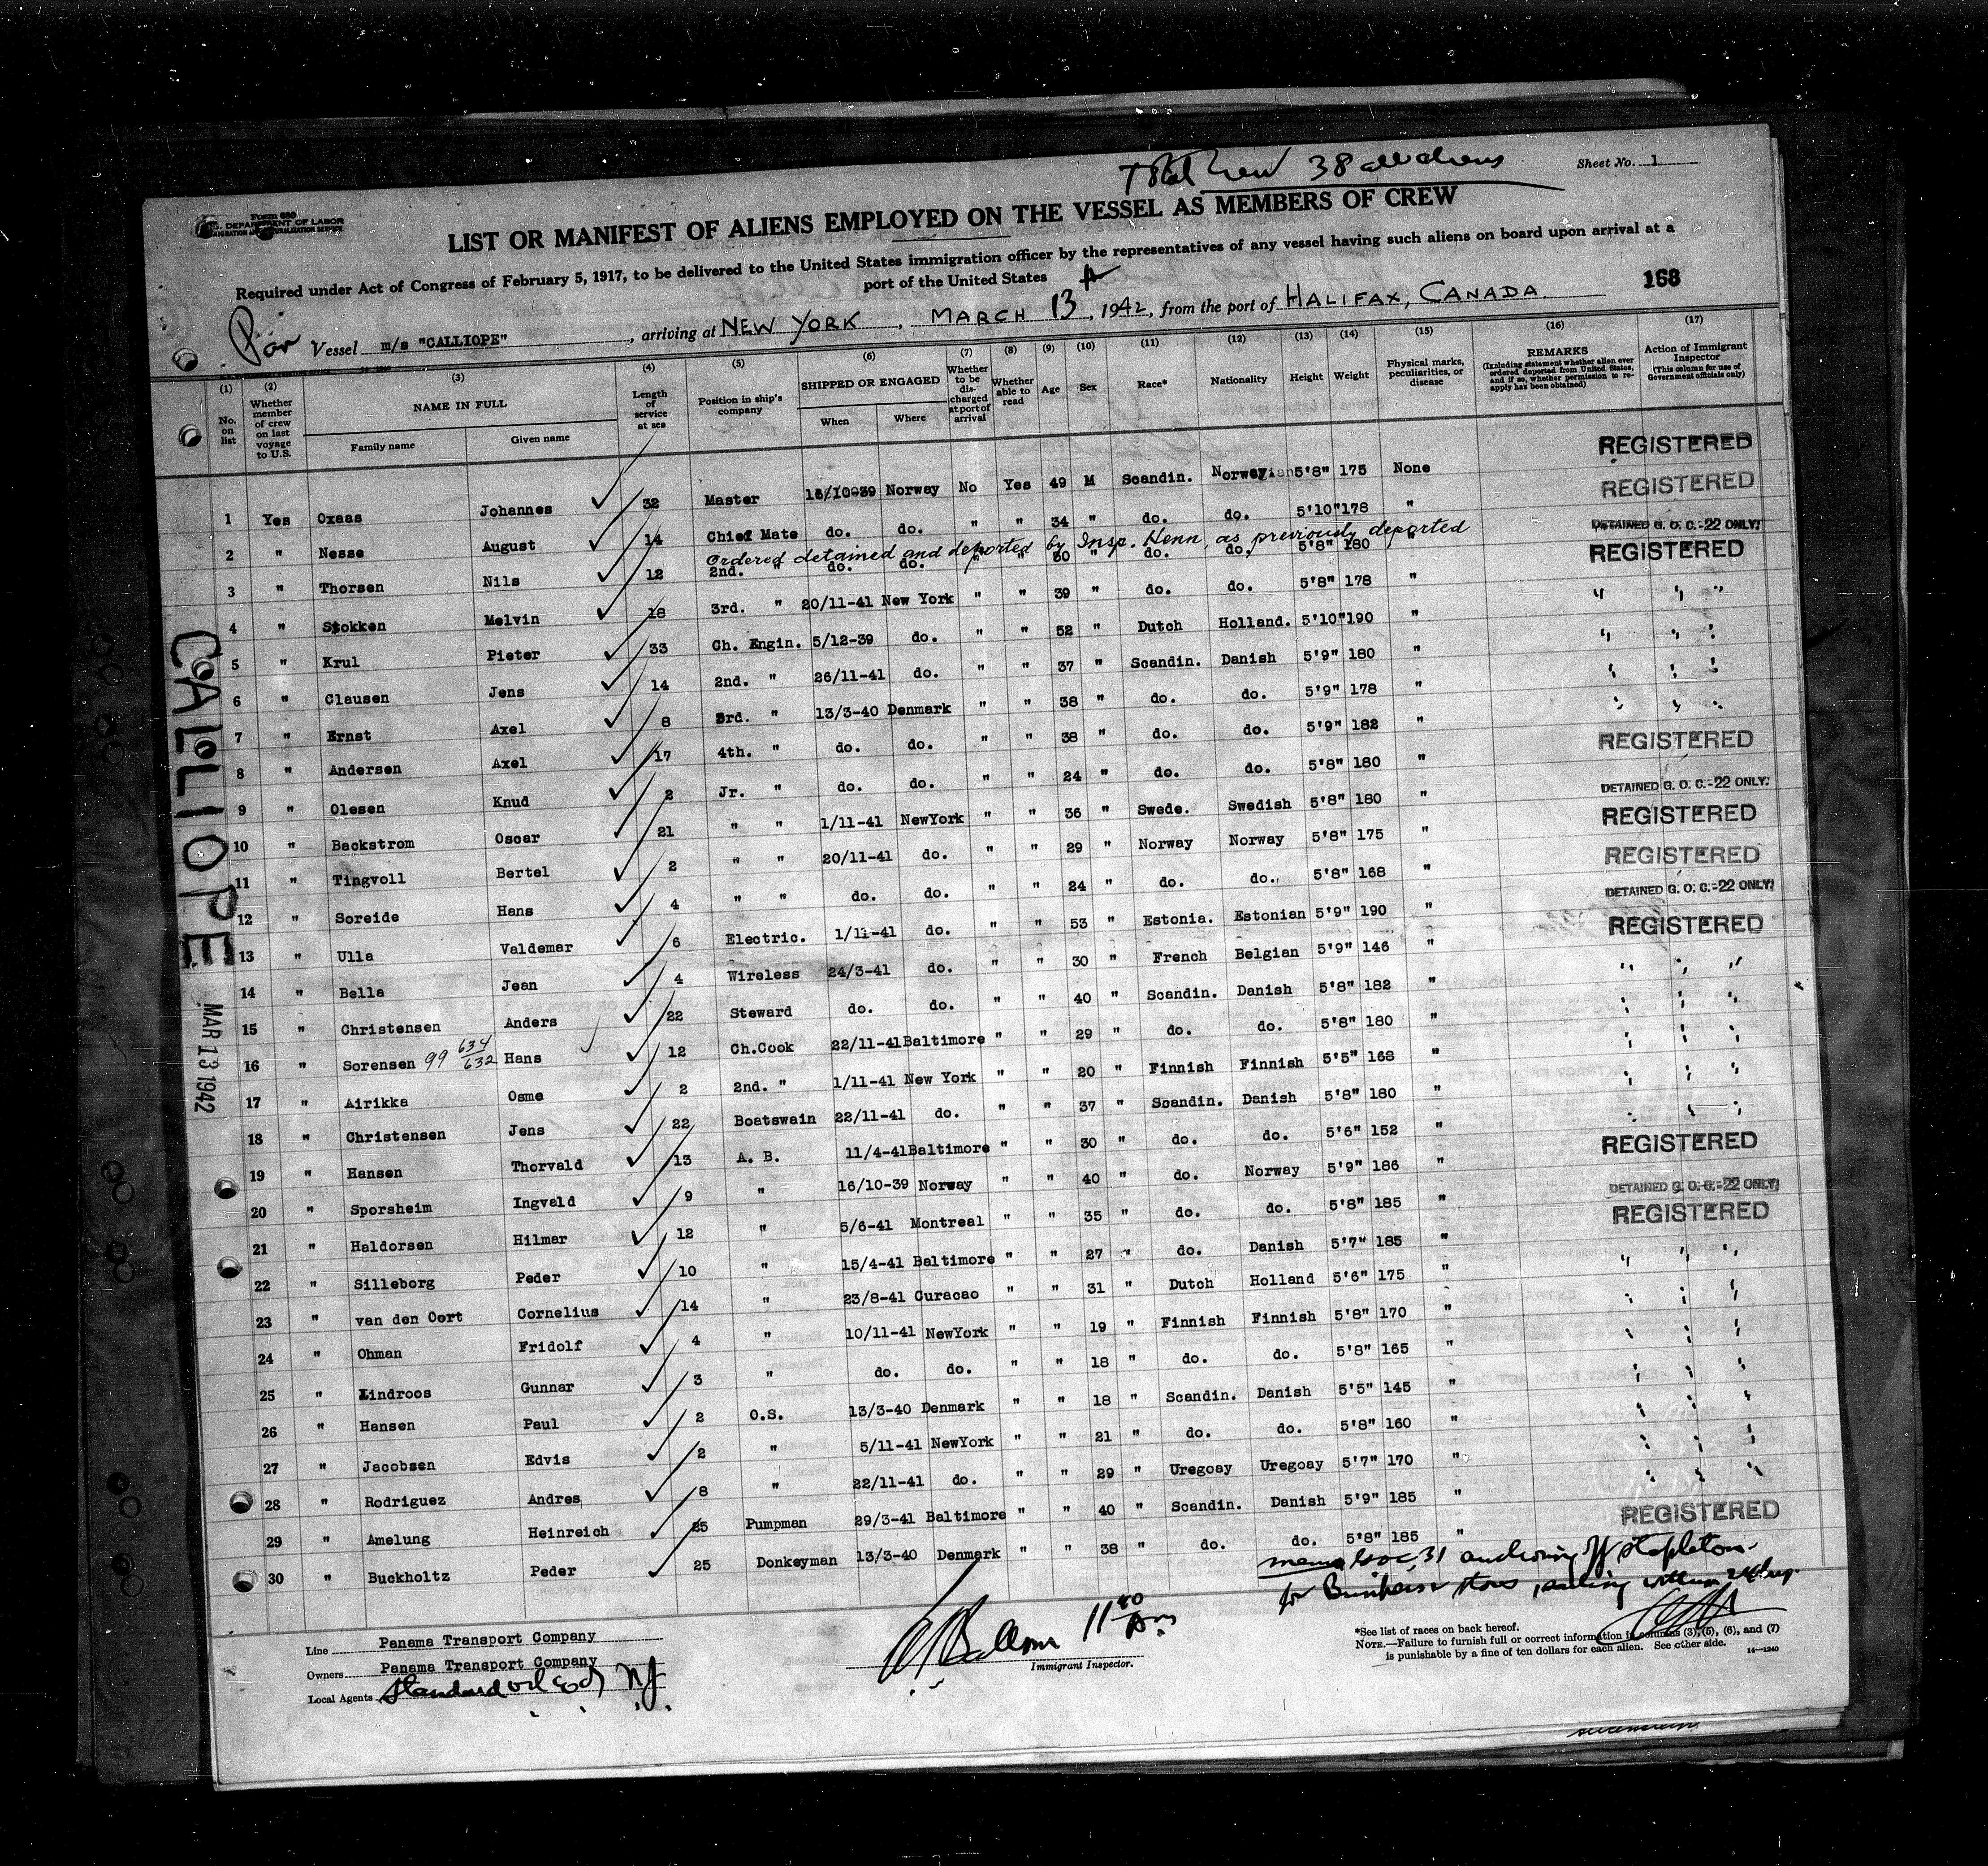 Total Crew 38 all aliens
Sheet No. 1
Form 680
DEPARTMENT OF LABOR
LIST OR MANIFEST OF ALIENS EMPLOYED ON THE VESSEL AS MEMBERS OF CREW
Required under Act of Congress of February 5, 1917, to be delivered to the United States immigration officer by the representatives of any vessel having such aliens on board upon arrival at a
port of the United States
168
Vessel m/s "CALLIOPE", arriving at NEW YORK, MARCH 13, 1942, from the port of HALIFAX, CANADA.
(1) No. on list (2) Whether member of crew on last voyage to U.S. (3) NAME IN FULL Family name Given name (4) Length of service at sea (5) Position in ship's company (6) SHIPPED OR ENGAGED When Where (7) Whether to be discharged at port of arrival (8) Whether able to read (9) Age (10) Sex (11) Race* (12) Nationality (13) Height (14) Weight (15) Physical marks, peculiarities, or disease (16) REMARKS (Including statement whether alien ever ordered deported from United States, and if so, whether permission to re-apply has been obtained) (17) Action of Immigrant Inspector (This column for use of Government officials only)
REGISTERED
1 Yes Oxaas Johannes 32 Master 16/10-39 Norway No Yes 49 M Scandin. Norwegian 5'8" 175 None
REGISTERED
2 " Nesse August 14 Chief Mate do. do. " " 34 " do. do. 5'10" 178 "
Ordered detained and deported by Insp. Henn, as previously deported
DETAINED G. O. C.-22 ONLY;
3 " Thorsen Nils 12 2nd. " do. do. " " 30 " do. do. 5'8" 180 "
REGISTERED
4 " Stokken Melvin 18 3rd. " 20/11-41 New York " " 39 " do. do. 5'8" 178 " " " "
5 " Krul Pieter 33 Ch. Engin. 5/12-39 do. " " 52 " Dutch Holland. 5'10" 190 " " " "
6 " Clausen Jens 14 2nd. " 26/11-41 do. " " 37 " Scandin. Danish 5'9" 180 " " " "
7 " Ernst Axel 8 3rd. " 13/3-40 Denmark " " 38 " do. do. 5'9" 178 " " " "
8 " Andersen Axel 17 4th. " do. do. " " 38 " do. do. 5'9" 182 "
REGISTERED
9 " Olesen Knud 2 Jr. " do. do. " " 24 " do. do. 5'8" 180 "
DETAINED G. O. C.-22 ONLY;
10 " Backstrom Oscar 21 " " 1/11-41 NewYork " " 36 " Swede. Swedish 5'8" 180 "
REGISTERED
11 " Tingvoll Bertel 2 " " 20/11-41 do. " " 29 " Norway Norway 5'8" 175 "
REGISTERED
12 " Soreide Hans 4 " " do. do. " " 24 " do. do. 5'8" 168 "
DETAINED G. O. C.-22 ONLY;
13 " Ulla Valdemar 6 Electric. 1/11-41 do. " " 53 " Estonia. Estonian 5'9" 190 "
REGISTERED
14 " Bella Jean 4 Wireless 24/3-41 do. " " 30 " French Belgian 5'9" 146 " " " "
15 " Christensen Anders 22 Steward do. do. " " 40 " Scandin. Danish 5'8" 182 " " " "
16 " Sorensen 99 634/632 Hans 12 Ch.Cook 22/11-41 Baltimore " " 29 " do. do. 5'8" 180 " " " "
17 " Airikka Osme 2 2nd. " 1/11-41 New York " " 20 " Finnish Finnish 5'5" 168 " " " "
18 " Christensen Jens 22 Boatswain 22/11-41 do. " " 37 " Scandin. Danish 5'8" 180 " " " "
19 " Hansen Thorvald 13 A. B. 11/4-41 Baltimore " " 30 " do. do. 5'6" 152 "
REGISTERED
20 " Sporsheim Ingvald 9 " 16/10-39 Norway " " 40 " do. Norway 5'9" 186 "
DETAINED G. O. C.-22 ONLY;
21 " Haldorsen Hilmar 12 " 5/6-41 Montreal " " 35 " do. do. 5'8" 185 "
REGISTERED
22 " Silleborg Peder 10 " 15/4-41 Baltimore " " 27 " do. Danish 5'7" 185 " " " "
23 " van den Oort Cornelius 14 " 23/8-41 Curacao " " 31 " Dutch Holland 5'6" 175 " " " "
24 " Ohman Fridolf 4 " 10/11-41 NewYork " " 19 " Finnish Finnish 5'8" 170 " " " "
25 " Lindroos Gunnar 3 " do. do. " " 18 " do. do. 5'8" 165 " " " "
26 " Hansen Paul 2 O.S. 13/3-40 Denmark " " 18 " Scandin. Danish 5'5" 145 " " " "
27 " Jacobsen Edvis 2 " 5/11-41 NewYork " " 21 " do. do. 5'8" 160 " " " "
28 " Rodriguez Andres 8 " 22/11-41 do. " " 29 " Uregoay Uregoay 5'7" 170 " " " "
29 " Amelung Heinreich 25 Pumpman 29/3-41 Baltimore " " 40 " Scandin. Danish 5'9" 185 "
REGISTERED
30 " Buckholtz Peder 25 Donkeyman 13/3-40 Denmark " " 38 " do. do. 5'8" 185 "
anchoring off Stapleton
for Bunkers stores, sailing within
11 40 Am
Line Panama Transport Company
Owners Panama Transport Company
Local Agents Standard Oil Co of NJ
Immigrant Inspector.
*See list of races on back hereof.
NOTE.—Failure to furnish full or correct information in columns (3), (5), (6), and (7)
is punishable by a fine of ten dollars for each alien. See other side. 14-1240
CALLIOPE
MAR 13 1942